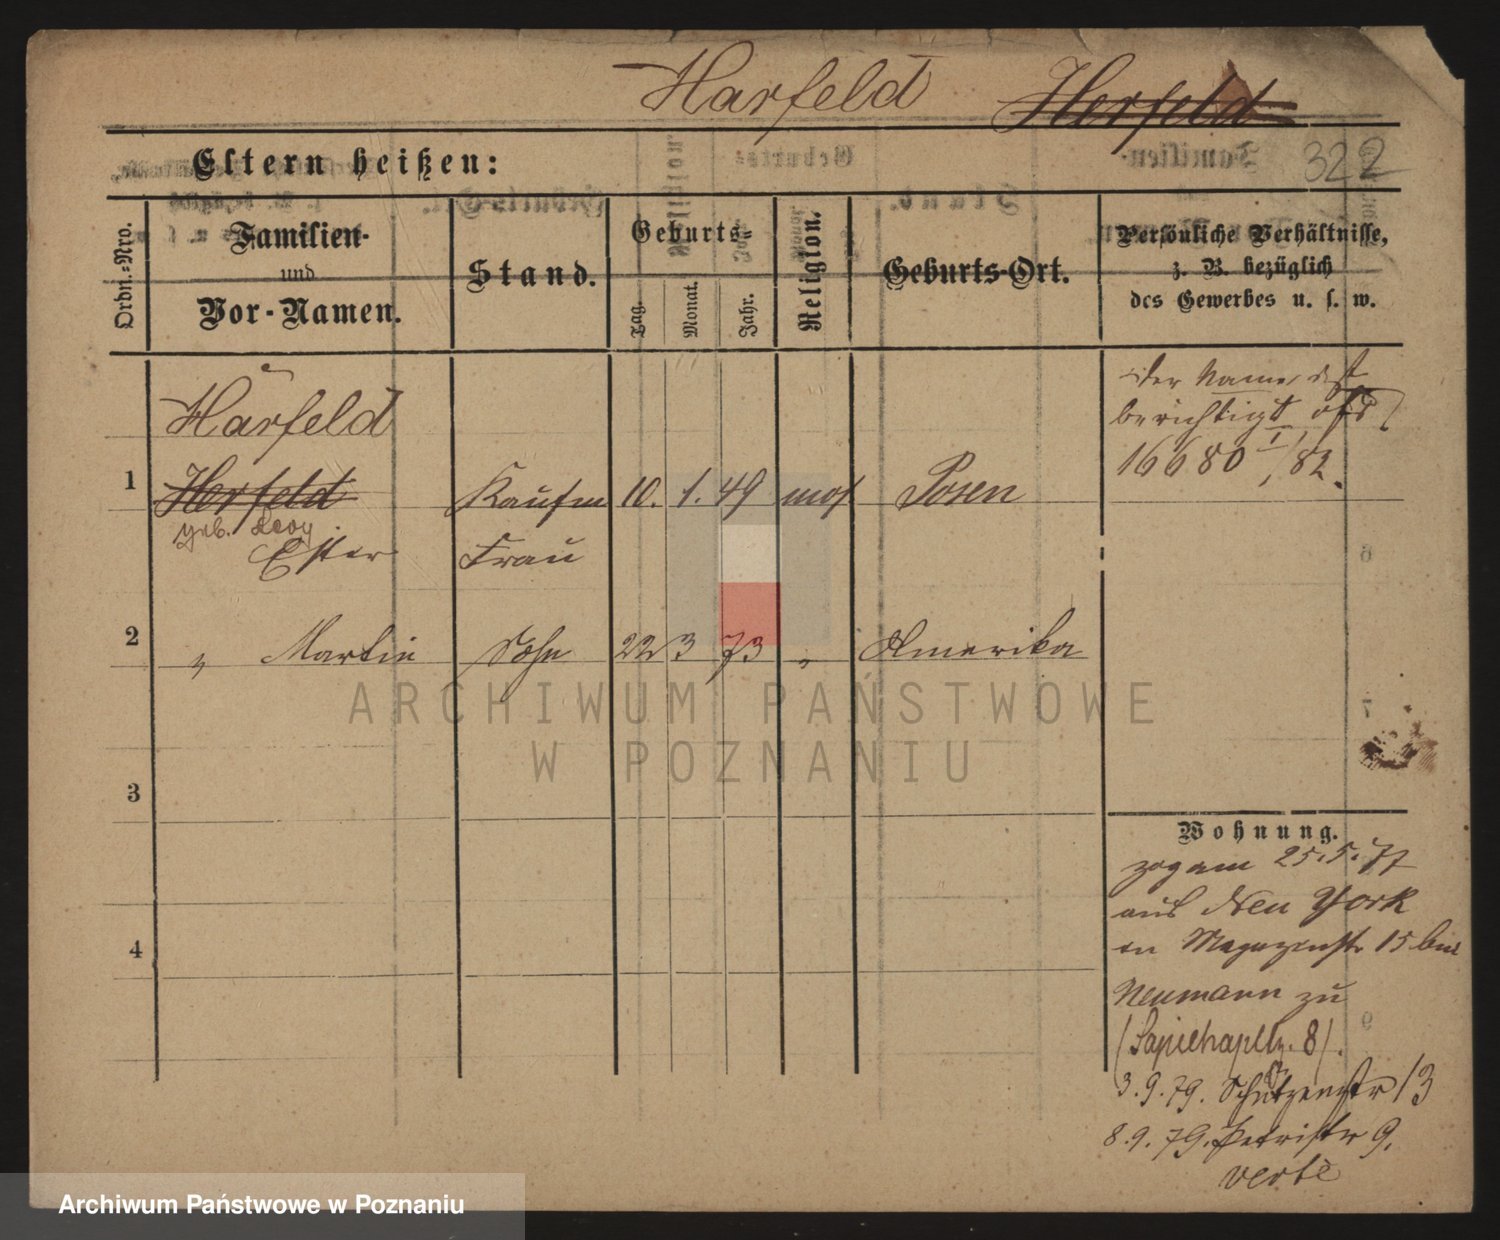 Harfeld Herfeld
322
Eltern heißen:
Ordn.=Nro.
Familien-
und
Vor-Namen.
Stand.
Geburts=
Tag.
Monat.
Jahr.
Religion.
Geburts-Ort.
Persönliche Verhältnisse,
z. B. bezüglich
des Gewerbes u. s. w.
Harfeld
1 Herfeld Kaufm 10. 1. 49 mos Posen
geb. Levy
Ester Frau
2 " Martin Sohn 22 3 73 " Amerika
3
4
Der Name ist
berichtigt
16680 I/82.
Wohnung.
zog am 25.5.77
aus New York
in Magazinstr 15 bei
Neumann zu
(Sapiehapltz. 8).
3.9.79. Schützenstr 13
8.9.79. Petristr 9.
verte
ARCHIWUM PAŃSTWOWE
W POZNANIU
Archiwum Państwowe w Poznaniu